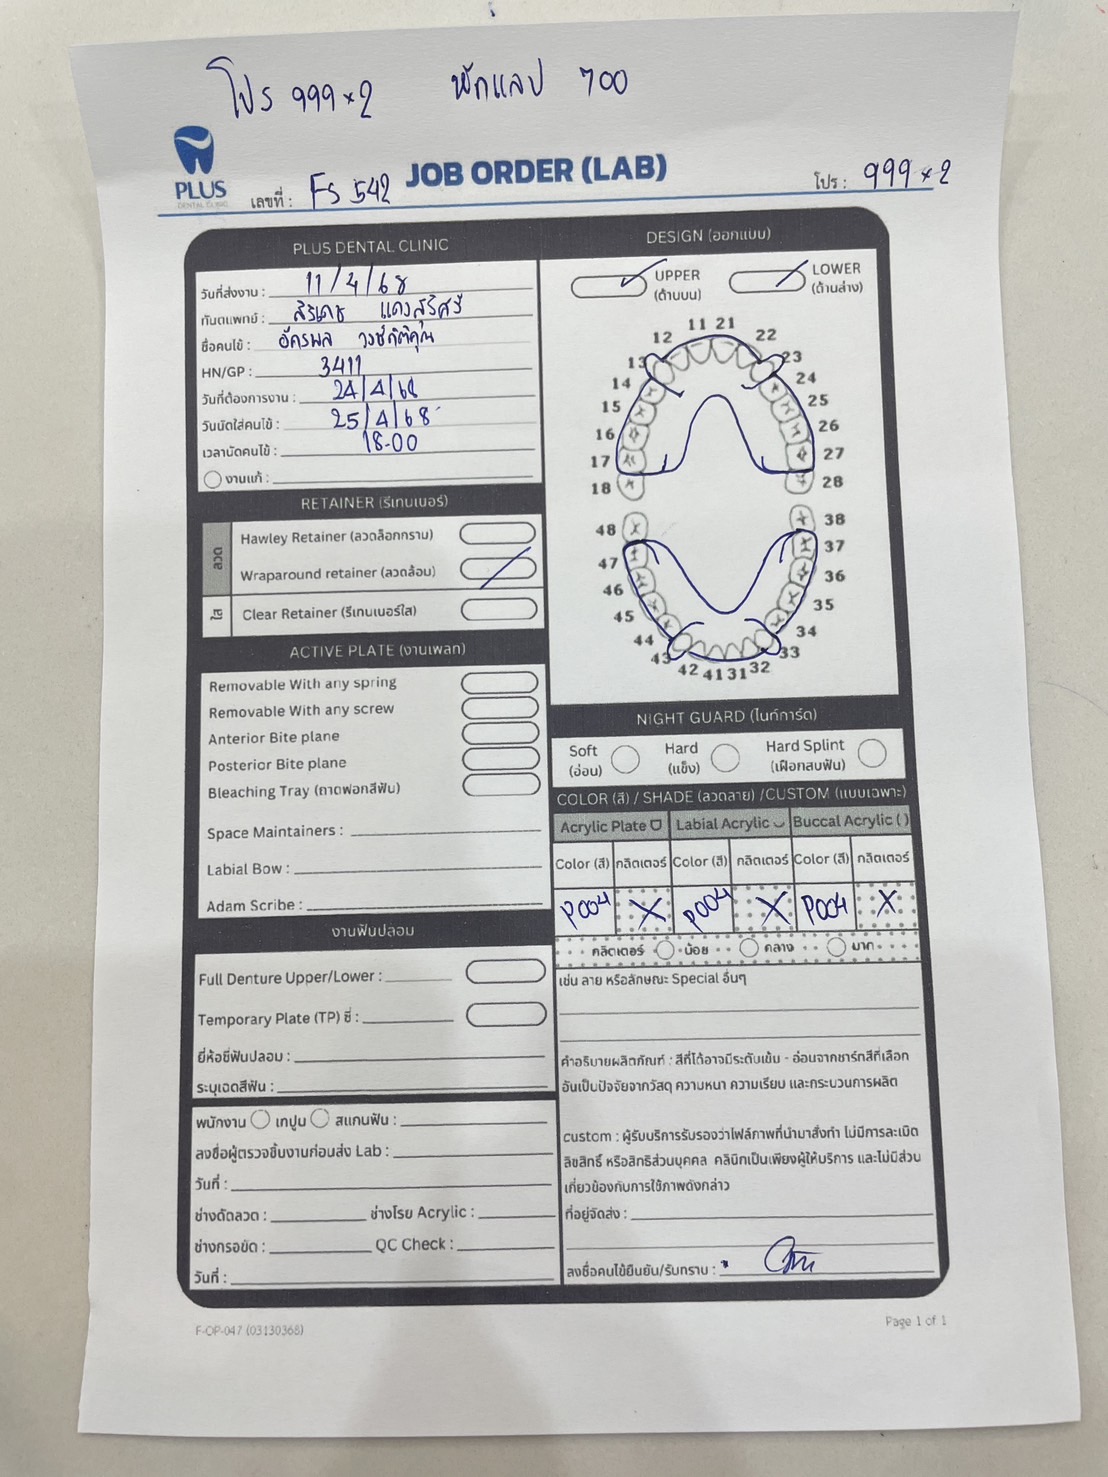 โปร 999 x 2 หักแลป 700
PLUS
DENTAL CLINIC
เลขที่ : FS 542
JOB ORDER (LAB)
โปร : 999 x 2
PLUS DENTAL CLINIC
วันที่ส่งงาน : 11/4/68
ทันตแพทย์ : สิรเดช แดงสุริศรี
ชื่อคนไข้ : อัครพล วงษ์กิติคุณ
HN/GP : 3411
วันที่ต้องการงาน : 24/4/68
วันนัดใส่คนไข้ : 25/4/68
เวลานัดคนไข้ : 18.00
งานแก้ :
RETAINER (รีเทนเนอร์)
ลวด
Hawley Retainer (ลวดล็อกกราม)
Wraparound retainer (ลวดล้อม)
ใส
Clear Retainer (รีเทนเนอร์ใส)
ACTIVE PLATE (งานเพลท)
Removable With any spring
Removable With any screw
Anterior Bite plane
Posterior Bite plane
Bleaching Tray (ถาดฟอกสีฟัน)
Space Maintainers :
Labial Bow :
Adam Scribe :
งานฟันปลอม
Full Denture Upper/Lower :
Temporary Plate (TP) ซี่ :
ยี่ห้อซี่ฟันปลอม :
ระบุเฉดสีฟัน :
พนักงาน เทปูน สแกนฟัน :
ลงชื่อผู้ตรวจชิ้นงานก่อนส่ง Lab :
วันที่ :
ช่างดัดลวด : ช่างโรย Acrylic :
ช่างกรอขัด : QC Check :
วันที่ :
DESIGN (ออกแบบ)
UPPER
(ด้านบน)
LOWER
(ด้านล่าง)
11 21
12 22
13 23
14 24
15 25
16 26
17 27
18 28
48 38
47 37
46 36
45 35
44 34
43 33
42 41 31 32
NIGHT GUARD (ไนท์การ์ด)
Soft
(อ่อน)
Hard
(แข็ง)
Hard Splint
(เฝือกสบฟัน)
COLOR (สี) / SHADE (ลวดลาย) /CUSTOM (แบบเฉพาะ)
Acrylic Plate Labial Acrylic Buccal Acrylic ( )
Color (สี) กลิตเตอร์ Color (สี) กลิตเตอร์ Color (สี) กลิตเตอร์
P004 X P004 X P004 X
กลิตเตอร์ น้อย กลาง มาก
เช่น ลาย หรือลักษณะ Special อื่นๆ
คำอธิบายผลิตภัณฑ์ : สีที่ได้อาจมีระดับเข้ม - อ่อนจากชาร์ทสีที่เลือก
อันเป็นปัจจัยจากวัสดุ ความหนา ความเรียบ และกระบวนการผลิต
custom : ผู้รับบริการรับรองว่าไฟล์ภาพที่นำมาสั่งทำ ไม่มีการละเมิด
ลิขสิทธิ์ หรือสิทธิส่วนบุคคล คลินิกเป็นเพียงผู้ให้บริการ และไม่มีส่วน
เกี่ยวข้องกับการใช้ภาพดังกล่าว
ที่อยู่จัดส่ง :
ลงชื่อคนไข้ยืนยัน/รับทราบ :
F-OP-047 (03130368)
Page 1 of 1